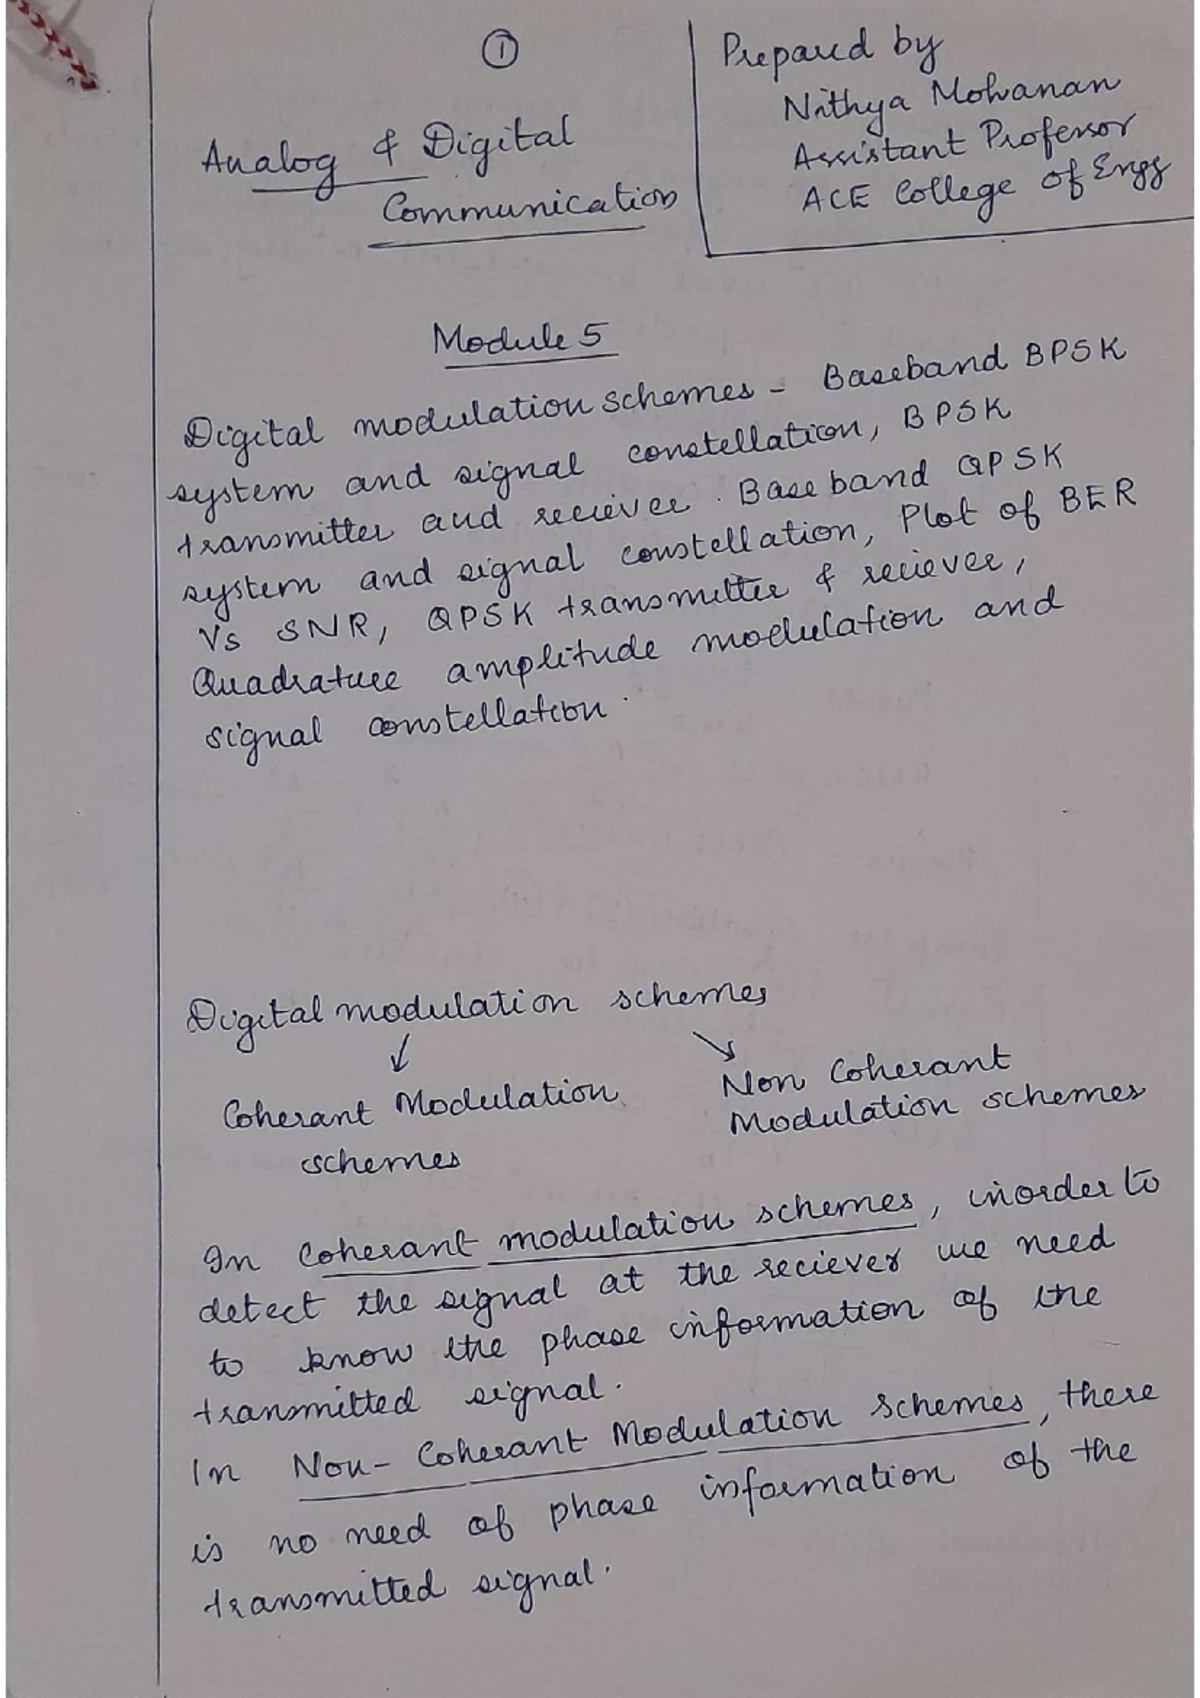 ①
Prepared by
Nithya Mohanan
Assistant Professor
ACE College of Engg
Analog & Digital
Communication
Module 5
Digital modulation schemes - Baseband BPSK
system and signal constellation, BPSK
transmitter and reciever. Baseband QPSK
system and signal constellation, Plot of BER
Vs SNR, QPSK transmitter & reciever,
Quadrature amplitude modulation and
signal constellation.
Digital modulation schemes
↓ ↘
Coherant Modulation
schemes
Non Coherant
Modulation schemes
In Coherant modulation schemes, inorder to
detect the signal at the reciever we need
to know the phase information of the
transmitted signal.
In Non-Coherant Modulation schemes, there
is no need of phase information of the
transmitted signal.